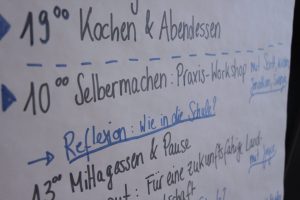 19⁰⁰ Kochen & Abendessen
10⁰⁰ Selbermachen: Praxis-Workshop mit
→ Reflexion: Wie in die Schule?
13⁰⁰ Mittagessen & Pause
Für eine zukunftsfähige Land
schaft